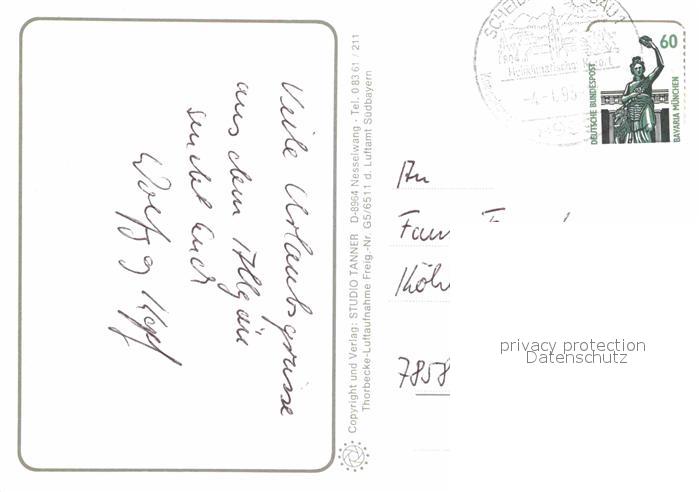 Viele Urlaubsgrüsse
aus dem Allgäu
sendet Euch
Wolfgang Kopf
Copyright und Verlag: STUDIO TANNER D-8964 Nesselwang - Tel. 0 83 61 / 211
Thorbecke-Luftaufnahme Freig.-Nr. G5/6511 d. Luftamt Südbayern
SCHEID
Heilklimatischer Kurort
DEUTSCHE BUNDESPOST
60
BAVARIA MÜNCHEN
An
Fam
Köh
7858
privacy protection
Datenschutz